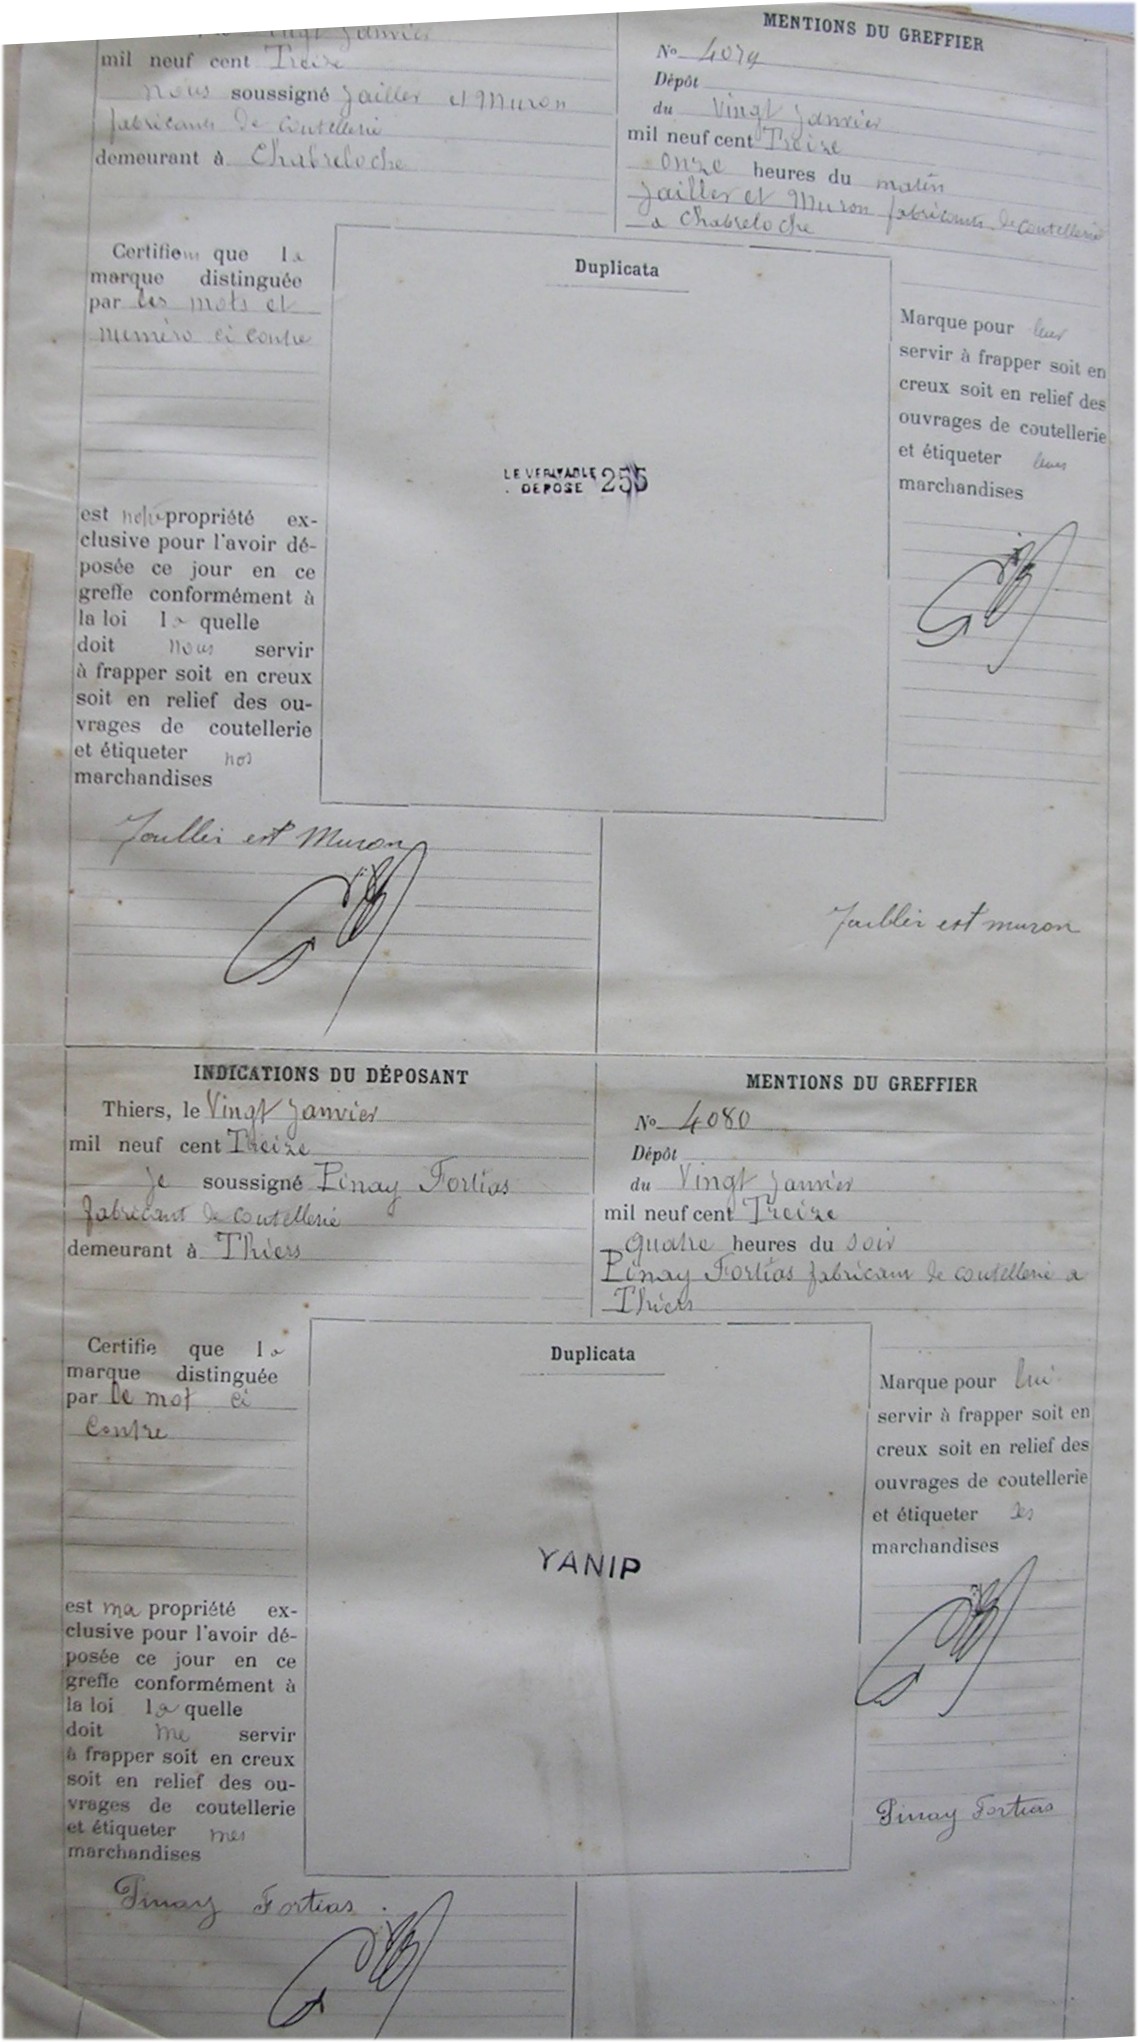 Vingt Janvier
mil neuf cent Treize
nous soussigné Jailler et Muron
fabricants de coutellerie
demeurant à Chabreloche
MENTIONS DU GREFFIER
No 4079
Dépôt
du Vingt Janvier
mil neuf cent Treize
Onze heures du matin
Jailler et Muron fabricants de coutellerie
a Chabreloche
Certifions que la
marque distinguée
par les mots et
numéro ci contre
est notre propriété ex-
clusive pour l'avoir dé-
posée ce jour en ce
greffe conformément à
la loi la quelle
doit nous servir
à frapper soit en creux
soit en relief des ou-
vrages de coutellerie
et étiqueter nos
marchandises
Duplicata
LE VERITABLE
DEPOSE 255
Marque pour leur
servir à frapper soit en
creux soit en relief des
ouvrages de coutellerie
et étiqueter leurs
marchandises
est Muron
est muron
INDICATIONS DU DÉPOSANT
Thiers, le Vingt Janvier
mil neuf cent Treize
Je soussigné Pinay Fortias
fabricant de coutellerie
demeurant à Thiers
MENTIONS DU GREFFIER
No 4080
Dépôt
du Vingt Janvier
mil neuf cent Treize
Quatre heures du soir
Pinay Fortias fabricant de coutellerie a
Thiers
Certifie que la
marque distinguée
par Le mot ci
Contre
est ma propriété ex-
clusive pour l'avoir dé-
posée ce jour en ce
greffe conformément à
la loi la quelle
doit me servir
à frapper soit en creux
soit en relief des ou-
vrages de coutellerie
et étiqueter mes
marchandises
Duplicata
YANIP
Marque pour lui
servir à frapper soit en
creux soit en relief des
ouvrages de coutellerie
et étiqueter ses
marchandises
Pinay Fortias
Pinay Fortias